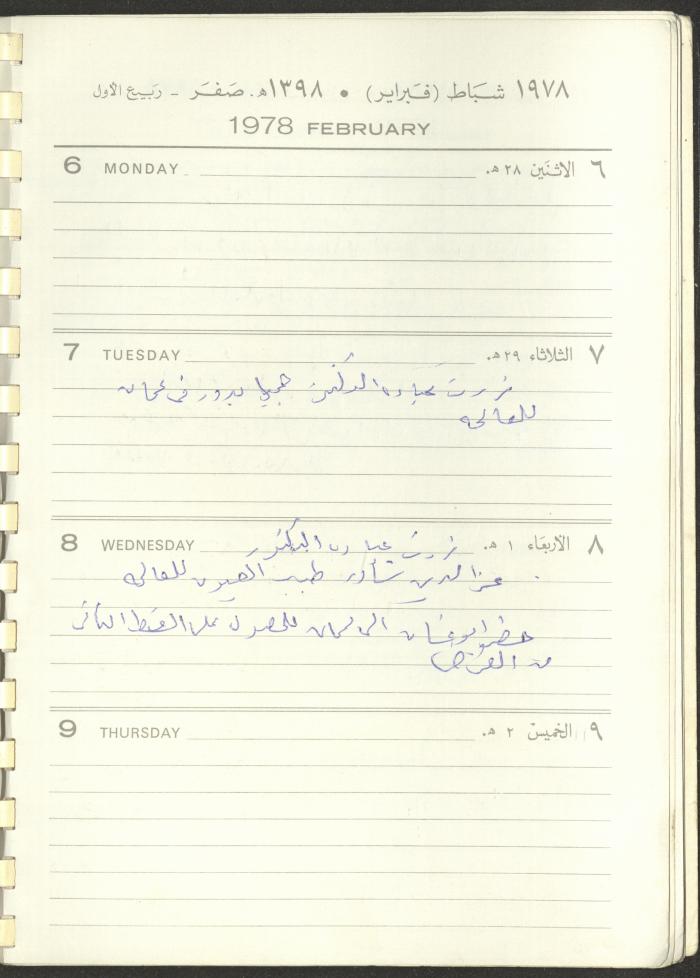 ١٩٧٨ شباط (فبراير) • ١٣٩٨ هـ. صفر - ربيع الأول
1978 FEBRUARY
6 MONDAY ٦ الاثنين ٢٨ هـ.
7 TUESDAY ٧ الثلاثاء ٢٩ هـ.
زرت عيادة الدكتور جميل بدور في عمان
للمعالجه
8 WEDNESDAY ٨ الأربعاء ١ هـ. زرت عيادة الدكتور
عز الدين طبيب العيون للمعالجه
حضر ابو غسان الى عمان للحصول على القسط الثاني
من القرض
9 THURSDAY ٩ الخميس ٢ هـ.